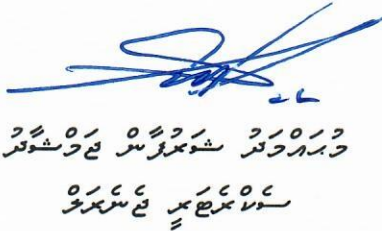 މުޙައްމަދު ޝަރުފާން ޖަމްޝާދު
ސެކްރެޓަރީ ޖެނެރަލް